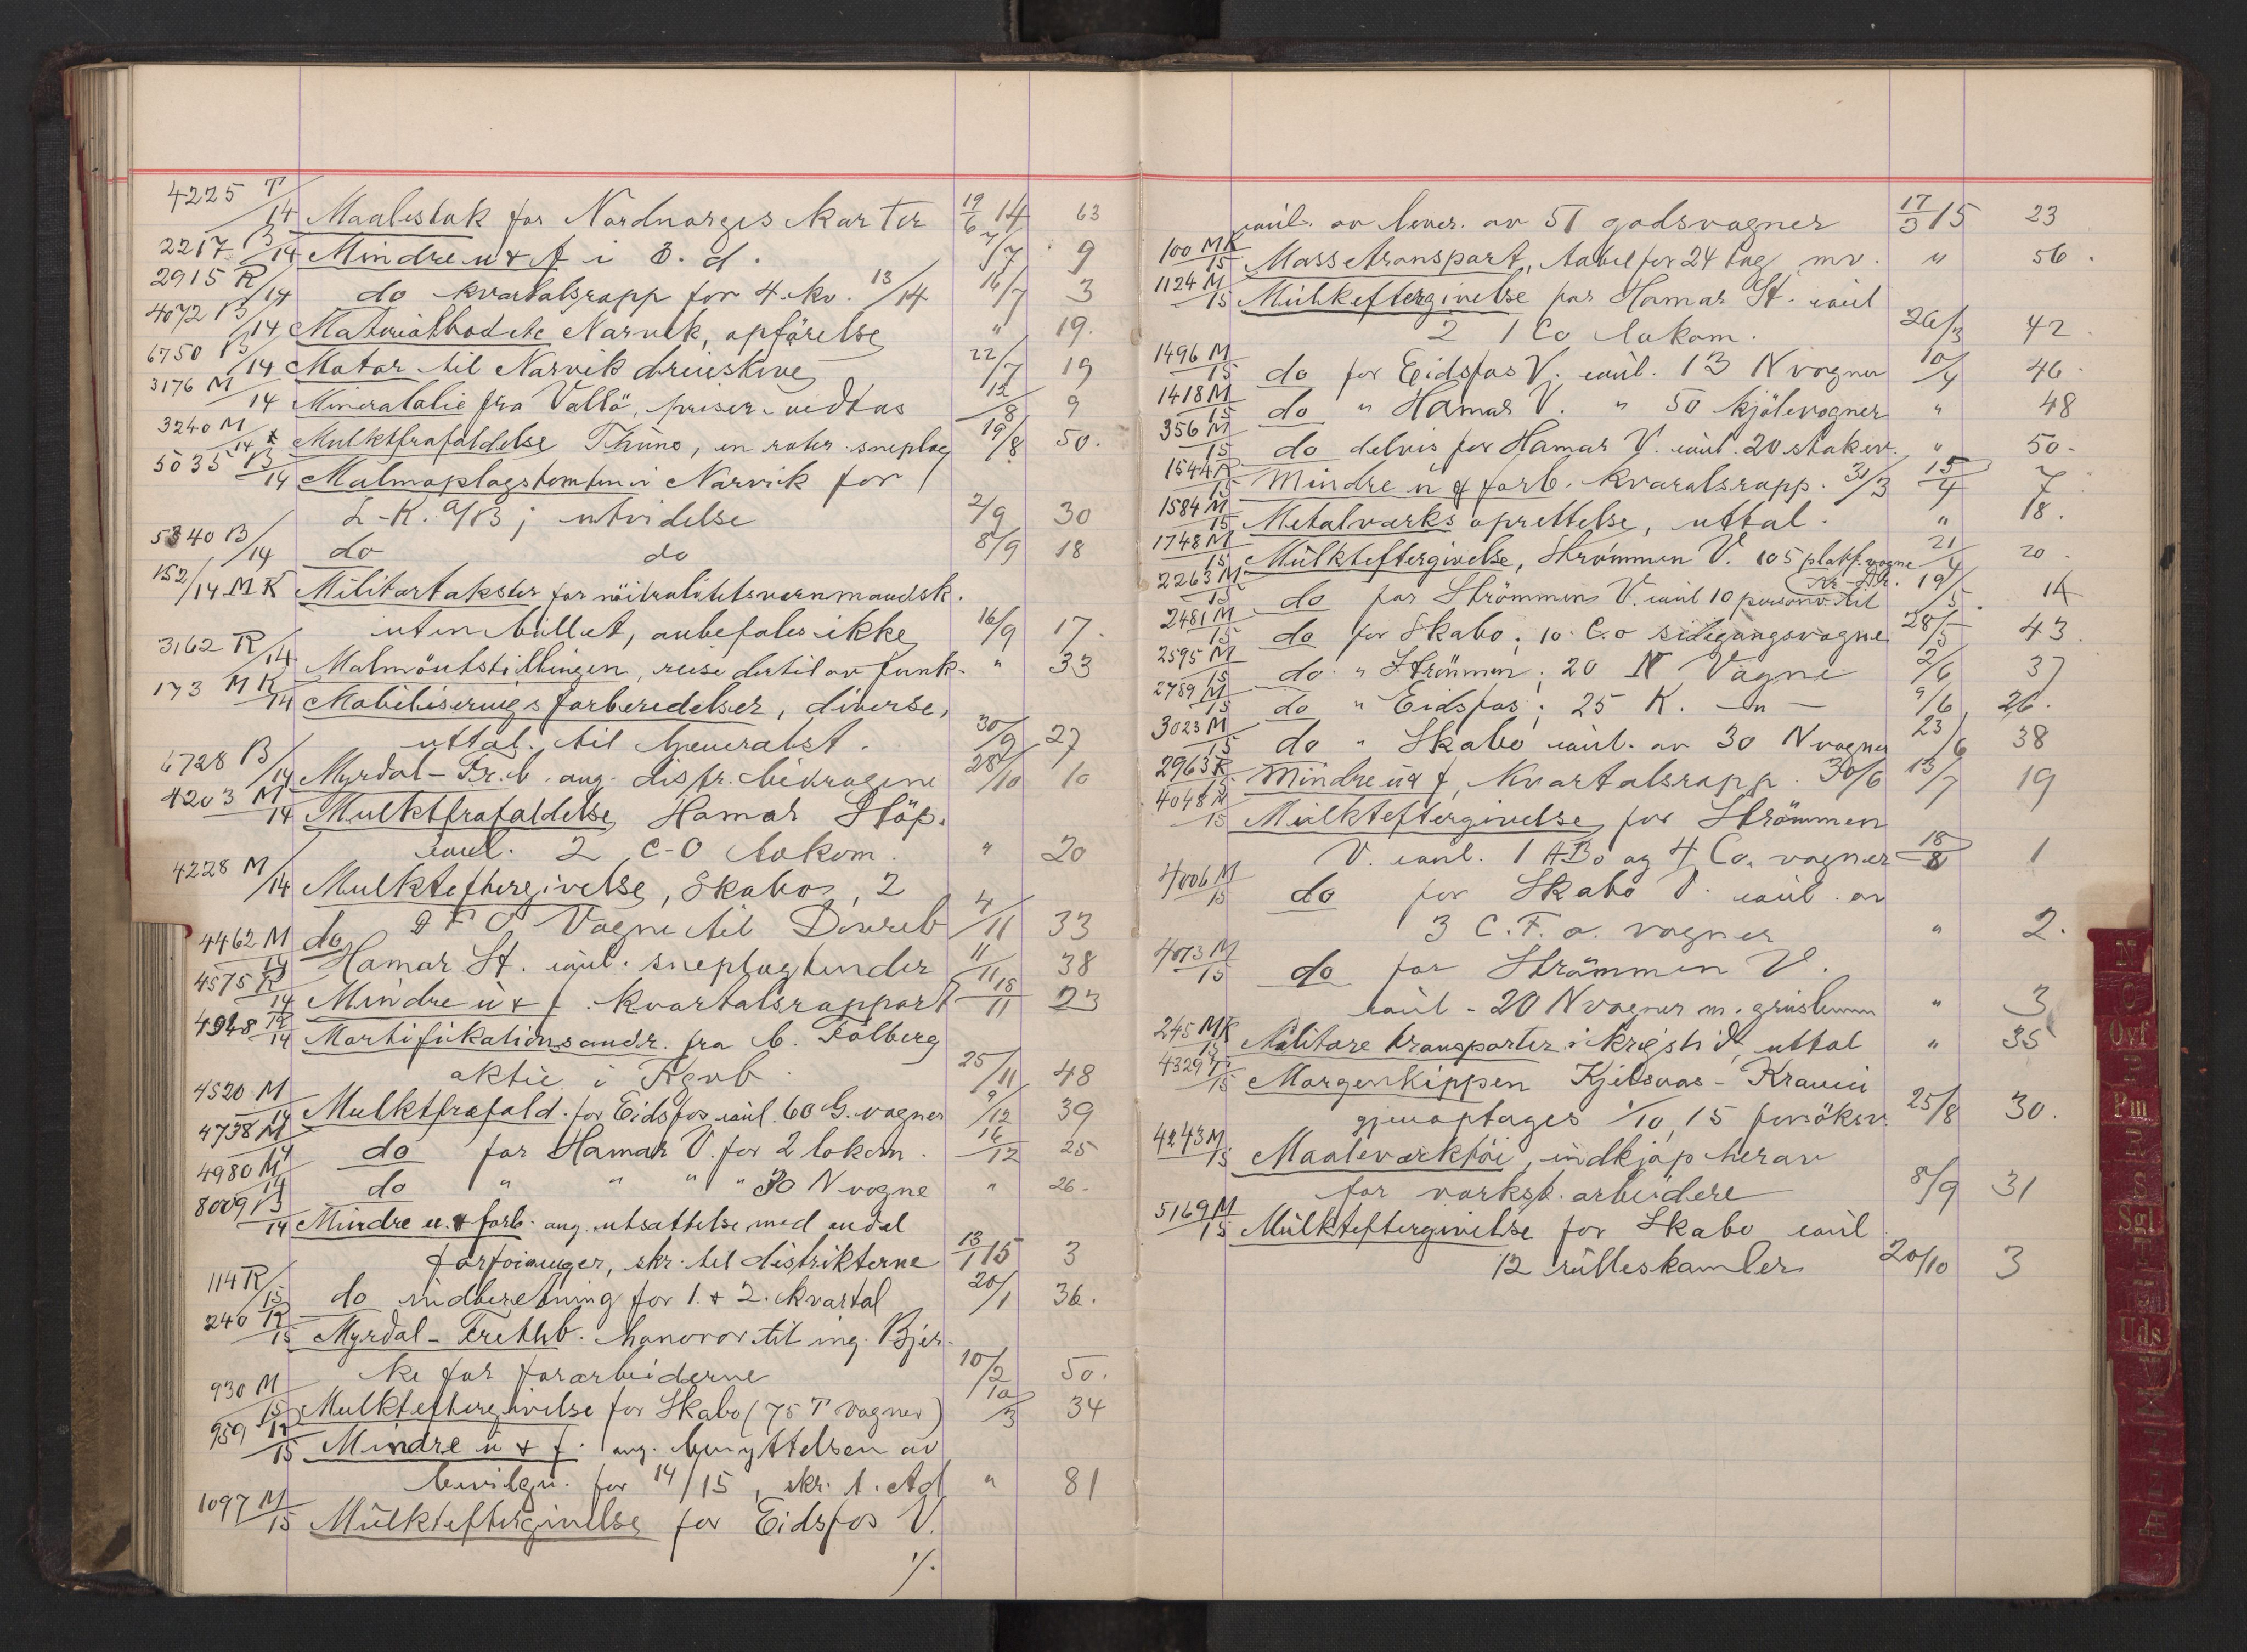 4225 T/14 Maalestok for Nordnorges karter 19/6 14 63
2217 B/14 Mindre u & f i 3. d. 7/7 9
2915 R/14 do kvartalsrapp for 4. kv. 13/14 16/7 3
4072 B/14 Materialbod etc Narvik, opförelse " 19.
6750 B/14 Motor til Narvik dreieskive 22/7 19
3176 M/14 Mineralolie fra Vallö, priser vedtas 12/8 9
3240 M/14 Mulktfrafaldelse Thune, en roter. sneplog 19/8 50.
5035 B/14 Malmoplagstomten i Narvik for
L-K. A/B; utvidelse 2/9 30
5340 B/14 do do 8/9 18
152/14 MK Militærtakster for nöitralitetsvernmandsk.
uten billet, anbefales ikke 16/9 17.
3162 R/14 Malmöutstillingen, reise dertil av funk. " 33
173 MK/14 Mobiliserings forberedelser, diverse,
uttal. til Generalst. 30/9 27
6728 B/14 Myrdal - Fr. b. ang. distr. bidragene 28/10 10
4203 M/14 Mulktfrafaldelse Hamar Stöp.
eavl. 2 C-O lokom. " 20
4228 M/14 Mulkteftergivelse, Skabo, 2
F O Vogne til Dovreb 4/11 33
4462 M/14 do Hamar St. eavl. sneplogtender 11/11 38
4575 R/14 Mindre u & f. kvartalsrapport 18/11 23
4948 R/14 Mortifikationsandr. fra C. Fölberg
aktie i Kgvb. 25/11 48
4520 M/14 Mulktfrafald. for Eidsfos eavl. 60 G. vogner 9/12 39
4738 M/14 do for Hamar V. for 2 lokom. 16/12 25
4980 M/14 do " " " " 30 N vogne " 26.
8009 B/14 Mindre u. & forb. ang. utsættelse med endel
forföininger, skr. til distrikterne 13/1 15 3
114 R/15 do indberetning for 1. & 2. kvartal 20/1 36.
240 R/15 Myrdal - Frethb. honorar til ing. Bjer-
ke for forarbeiderne 10/2 50.
930 M/15 Mulkteftergivelse for Skabo (75 T vogner) 10/3 34
959 R/15 Mindre u & f. ang. benyttelsen av
bevilgn. for 14/15, skr. t. Ad " 81
1097 M/15 Mulkteftergivelse for Eidsfos V.
·/.
eavl. av lever. av 51 godsvogner 17/3 15 23
100 MK/15 Massetransport, tabel for 24 tog mv. " 56.
1124 M/15 Mulkeftergivelse for Hamar St. eavl
2 1 Co lokom. 26/3 42
1496 M/15 do for Eidsfos V. eavl. 13 N vogner 10/4 46.
1418 M/15 do " Hamar V. " 50 kjölevogner " 48
356 M/15 do delvis for Hamar V. eavl. 20 stakev. " 50.
1544 R/15 Mindre u & forb. kvaralsrapp. 31/3 15/4 7
1584 M/15 Metalverks oprettelse, uttal. " 18.
1748 M/15 Mulkteftergivelse, Strömmen V. 105 platf. vogne 21/4 20.
2263 M/15 do for Strömmens V. eavl 10 personv. til 19/5 14
2481 M/15 do for Skabo; 10 C.o sidegangsvogne 28/5 43.
2595 M/15 do " Strömmen; 20 N Vogne 2/6 37
2789 M/15 do " Eidsfos; 25 K. -"- 9/6 26.
3023 M/15 do " Skabo eavl. av 30 N vogner 23/6 38
2963 R/15 Mindre u & f, Kvartalsrapp. 30/6 13/7 19
4048 M/15 Mulkteftergivelse for Strömmen
V. eavl. 1 ABo og 4 Co. vogner 18/8 1
4006 M/15 do for Skabo V. eavl. av
3 C.F.o. vogner " 2.
4073 M/15 do for Strömmen V.
eavl. 20 N vogner m. gruslemm " 3
245 MK/15 Militære transporter i krigstid, uttal " 35
4329 T/15 Morgenkippen Kjelsaas -
gjenoptages 1/10 15 forsöksv. 25/8 30.
4243 M/15 Maaleværktöi, indkjöp herav
for verkst. arbeidere 8/9 31
5169 M/15 Mulkteftergivelse for Skabo eavl
12 rulleskamler 20/10 3
N
Ovf
P
Pm
R
S
Sgl
T
U
Uds